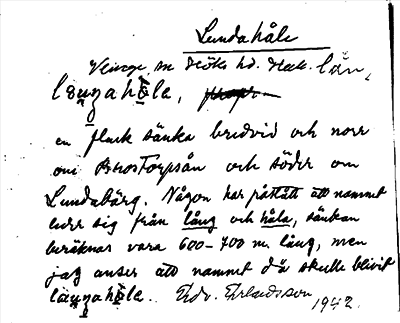 Lundahåle
Veinge sn Höks hd. Hall. län,
lauŋahåla,
en flack sänka bredvid och norr
om Brostorpsån och söder om
Lundabärg. Någon har påstått att namnet
leder sig från lång och håla, sänkan
beräknas vara 600-700 m. lång, men
jag anser att namnet då skulle blivit
lauŋahåle. Edv. Erlandsson
1942.